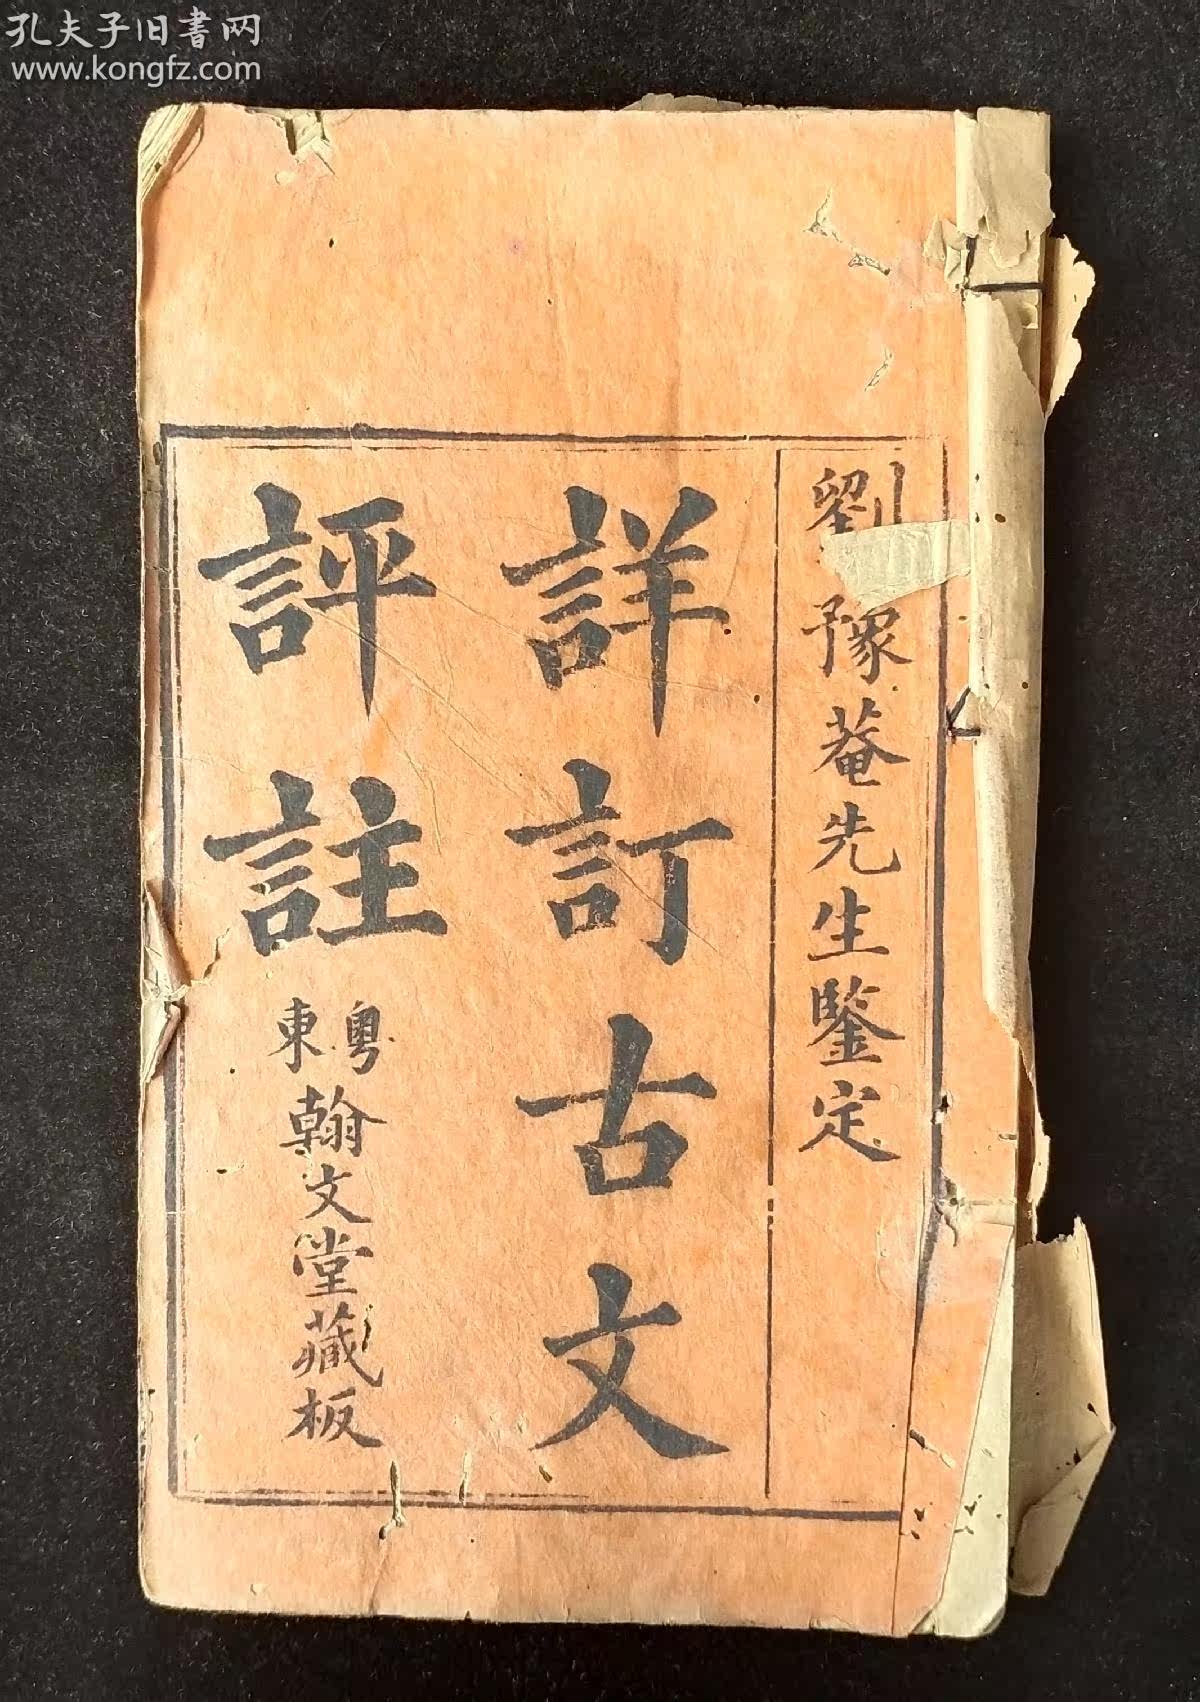 孔夫子旧書网
www.kongfz.com
劉豫菴先生鑒定
詳訂古文
評註
粵東
翰文堂藏板